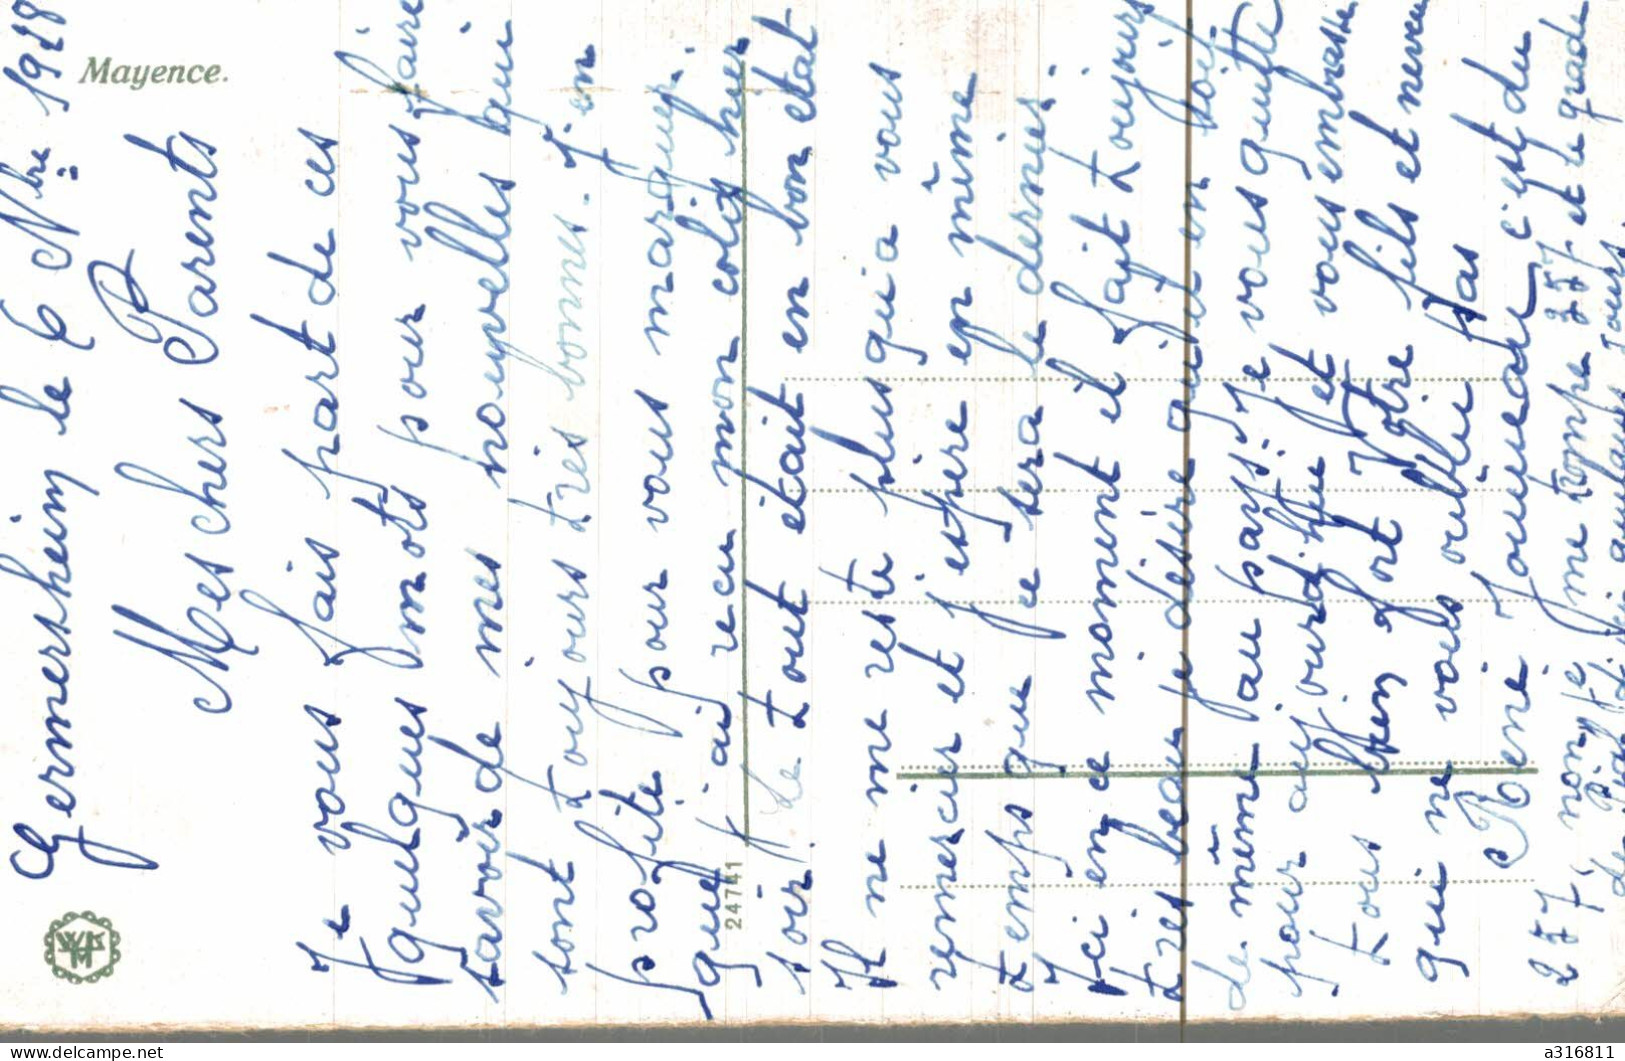 Mayence.
Germersheim le 6 Nbre 1928
Mes chers Parents
Je vous fais part de ces
quelques mots pour vous faire
savoir de mes nouvelles qui
sont toujours très bonnes. J'en
profite pour vous marquer
que j'ai recu mon colis hier
soir. Le tout était en bon état
Il ne me reste plus qu'a vous
remercier et j'espère en même
temps que ce sera le dernier.
Ici en ce moment il fait toujours
très beau je désire qu'il en soit
de même au pays. Je vous quitte
pour aujourd'hui et vous embrasse
tous bien fort Votre fils et neveu
qui ne vous oublie pas
René c'est du
257, non je me trompe 357 et le grade
de jours.
24741
WFK
M
a316811